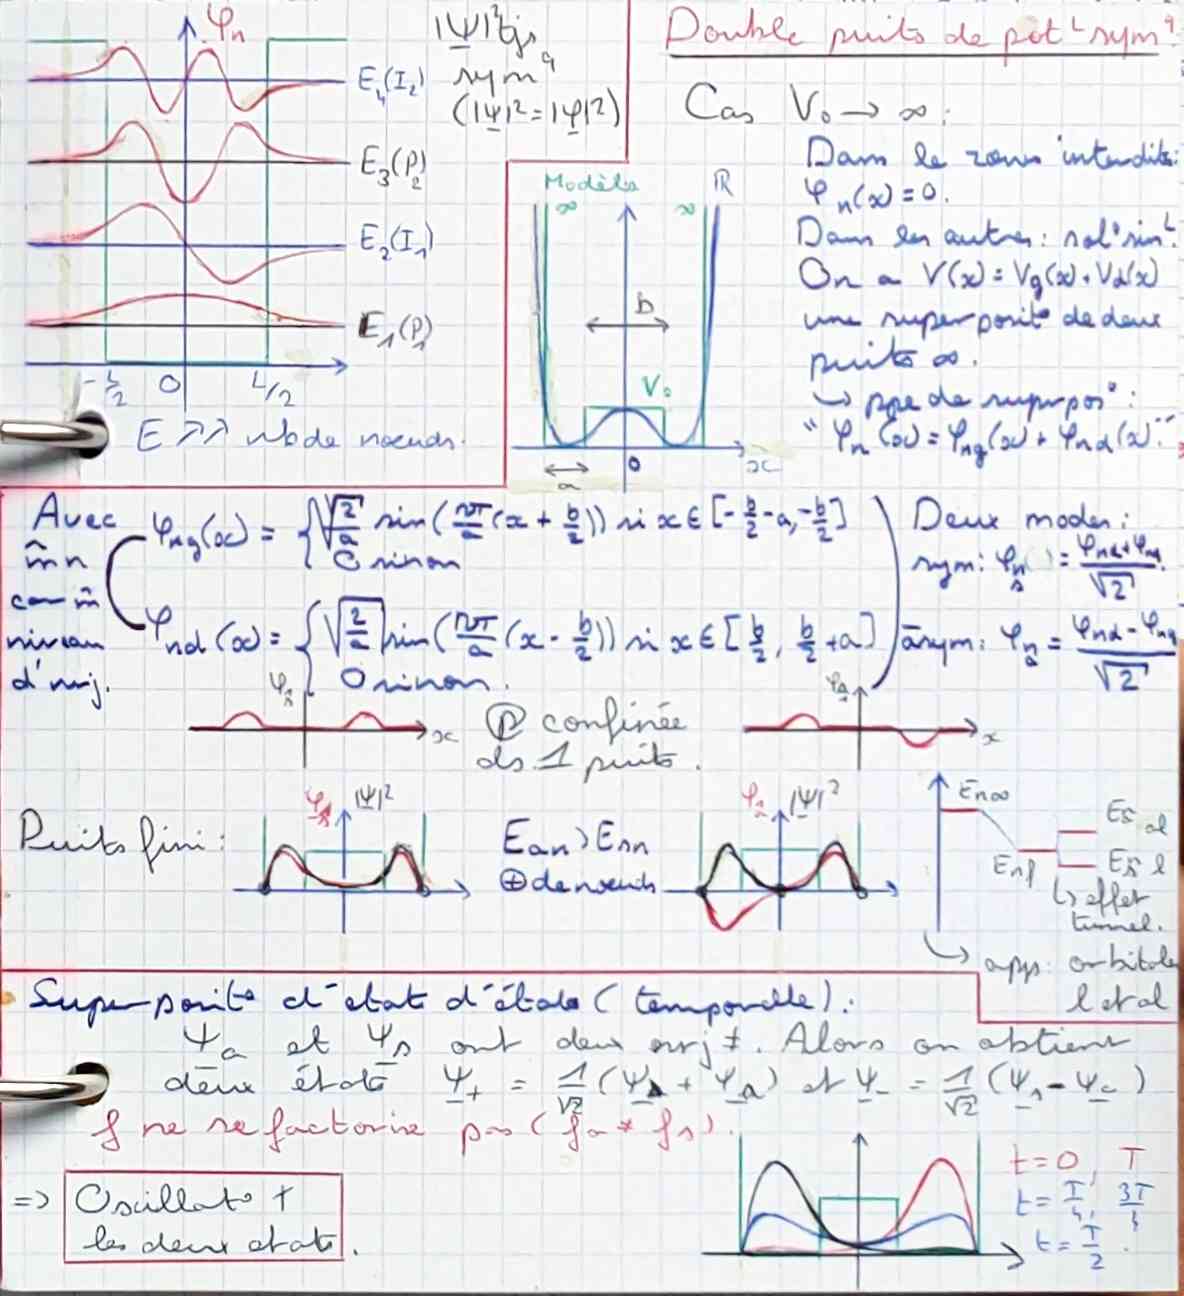 φn
E4(I2)
E3(P2)
E2(I1)
E1(P1)
-L/2 0 L/2
E ↗↗ nb de noeuds.
|Ψ|² tjs
sym^q
(|Ψ|²=|φ|²)
Double puits de pot^L sym^q
Cas V₀ → ∞ :
Modèle R
∞ ∞
b
V₀
a 0 x
Dans le zones interdite:
φn(x)=0.
Dans les autres: sol° sin^L.
On a V(x)=Vg(x)+Vd(x)
une superposit° de deux
puits ∞.
↳ ppe de superpos°:
"φn(x)=φng(x)+φnd(x)."
Avec
m̂ n
car m̂
niveau
d'nrj.
φng(x) = { √(2/a) sin(nπ/a (x + b/2)) si x ∈ [-b/2 - a, -b/2]
0 sinon
φnd(x) = { √(2/a) sin(nπ/a (x - b/2)) si x ∈ [b/2, b/2 + a]
0 sinon.
Deux modes:
sym: φn s = (φnd+φng)/√2
āsym: φn a = (φnd - φng)/√2
φs x
Ⓟ confinée
ds 1 puits.
φa x
Puits fini:
φs |Ψ|²
Ean > Esn
⊕ de noeuds
φa |Ψ|²
En∞
Enf
al
l
↳ effet
tunnel.
↳ app: orbitale
l et al
Superposit° d'état d'états (temporelle):
Ψa et Ψs ont deux nrj ≠. Alors on obtient
deux états Ψ+ = 1/√2 (Ψs + Ψa) et Ψ- = 1/√2 (Ψs - Ψa)
f ne se factorise pas (fa ≠ fs).
=> Oscillat° †
les deux états.
t=0, T
t=T/4, 3T/4
t=T/2.